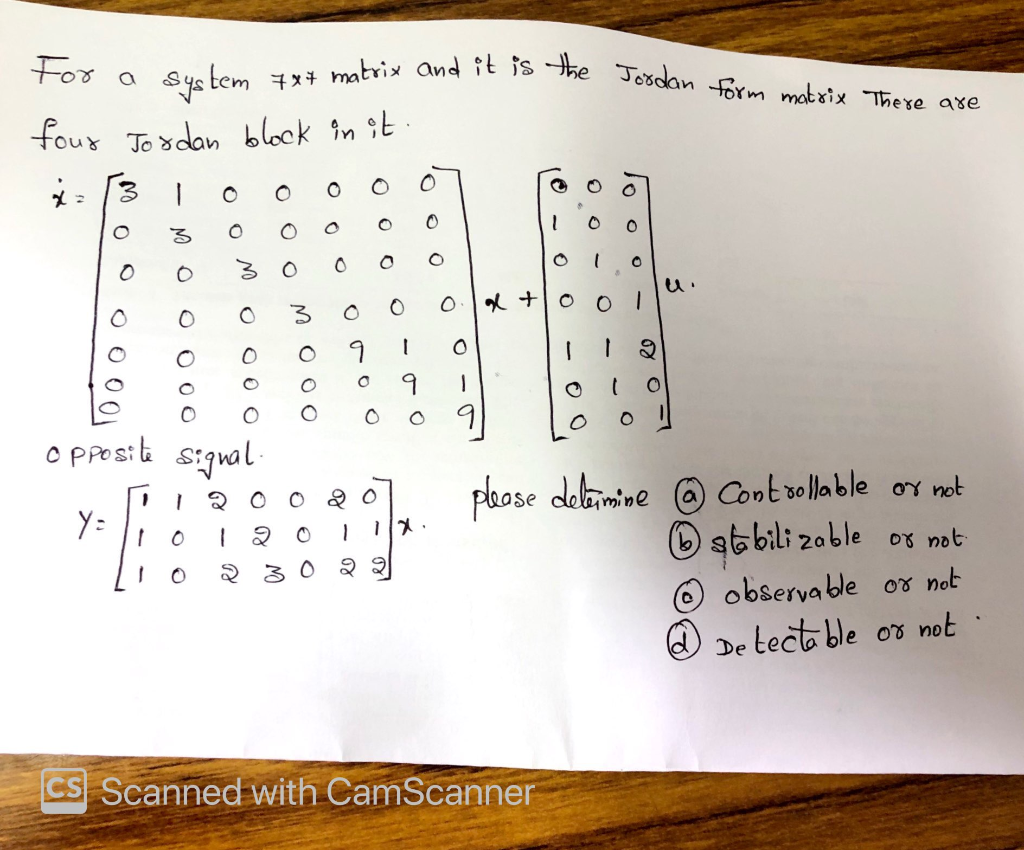 For a system 7x7 matrix and it is the Jordan form matrix There are
four Jordan block in it.
ẋ = [3 1 0 0 0 0 0] [0 0 0]
0 3 0 0 0 0 0 1 0 0
0 0 3 0 0 0 0 0 1 0
0 0 0 3 0 0 0. x + 0 0 1 u.
0 0 0 0 9 1 0 1 1 2
0 0 0 0 0 9 1 0 1 0
0 0 0 0 0 0 9 0 0 1
opposite signal.
y = [1 1 2 0 0 2 0] please determine (a) Controllable or not
1 0 1 2 0 1 1 x. (b) stabilizable or not
1 0 2 3 0 2 2 (c) observable or not
(d) Detectable or not.
CS Scanned with CamScanner